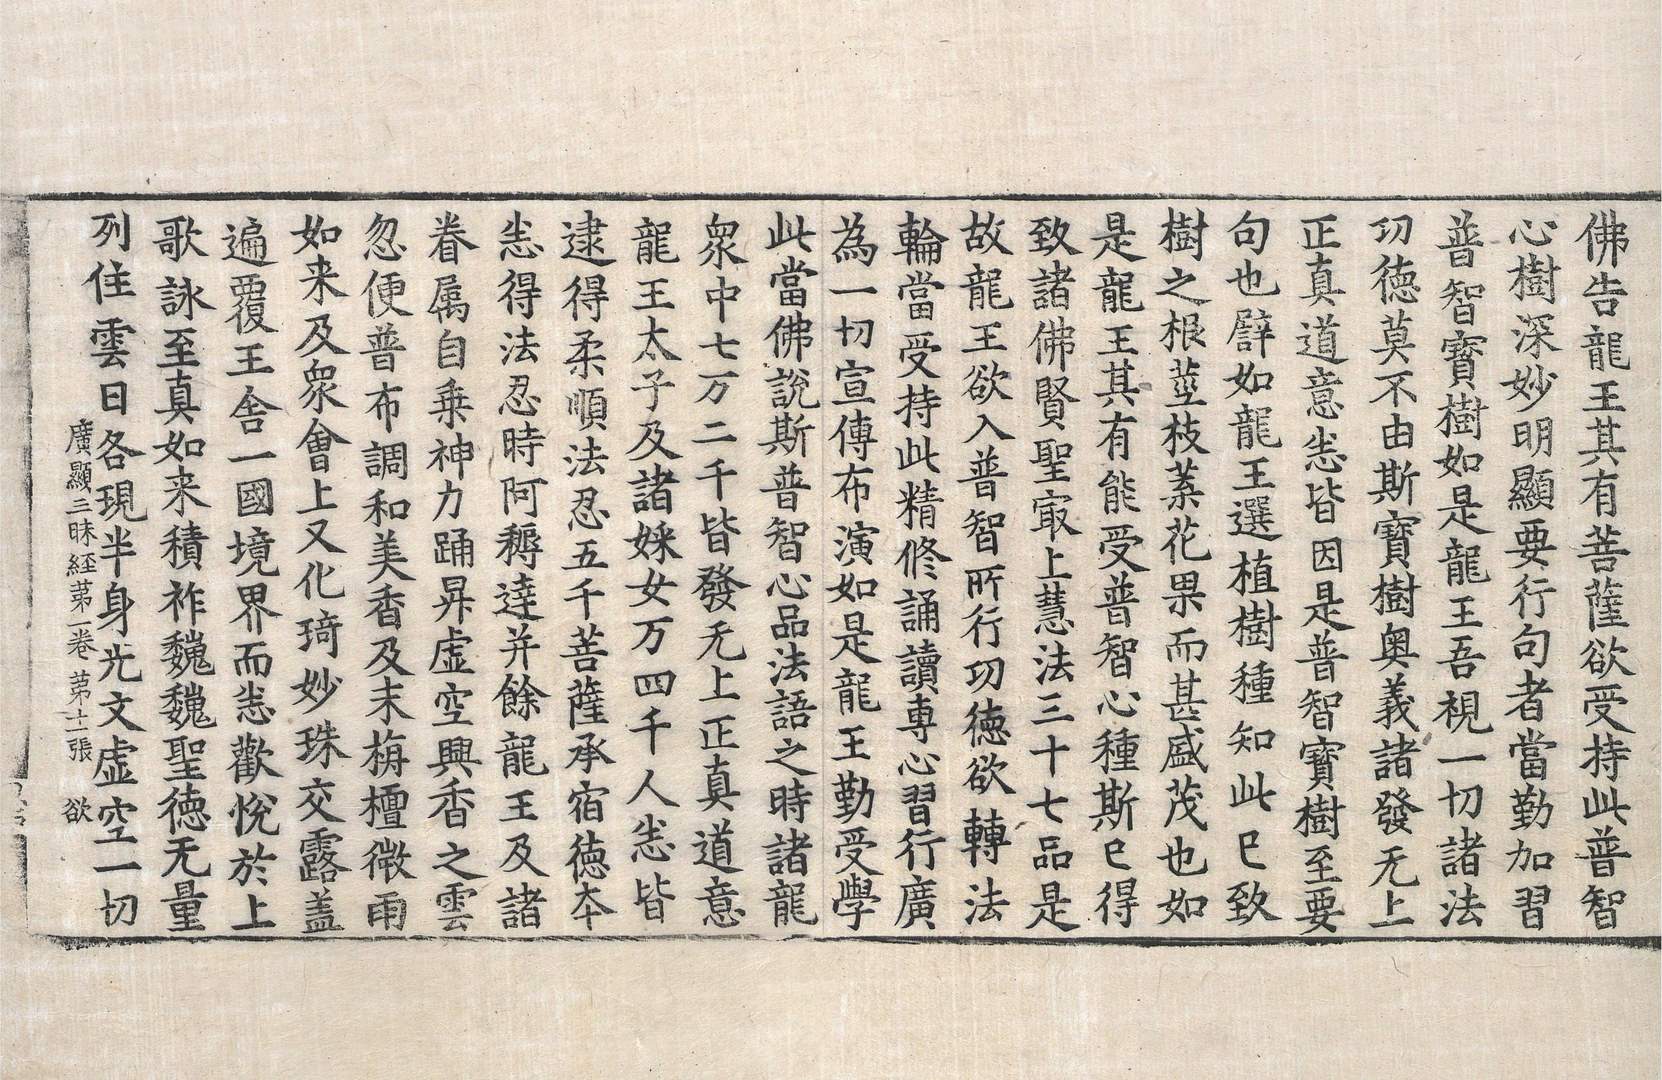 佛告龍王其有菩薩欲受持此普智
心樹深妙明顯要行句者當勤加習
普智寶樹如是龍王吾視一切諸法
功德莫不由斯寶樹奧義諸發无上
正真道意恙皆因是普智寶樹至要
句也譬如龍王選植樹種知此已致
樹之根莖枝葉花果而甚盛茂也如
是龍王其有能受普智心種斯已得
致諸佛賢聖㝡上慧法三十七品是
故龍王欲入普智所行功德欲轉法
輪當受持此精修誦讀專心習行廣
為一切宣傳布演如是龍王勤受學
此當佛說斯普智心品法語之時諸龍
衆中七万二千皆發无上正真道意
龍王太子及諸婇女万四千人恙皆
逮得柔順法忍五千菩薩承宿德夲
恙得法忍時阿耨達并餘龍王及諸
眷属自乗神力踊昇虚空興香之雲
忽便普布調和美香及末栴檀微雨
如来及衆會上又化琦妙珠交露盖
遍覆王舎一國境界而恙歡悅於上
歌詠至真如来積祚巍巍聖德无量
列住雲日各現半身光文虚空一切
廣顯三昧経苐一卷 苐十一張 欲